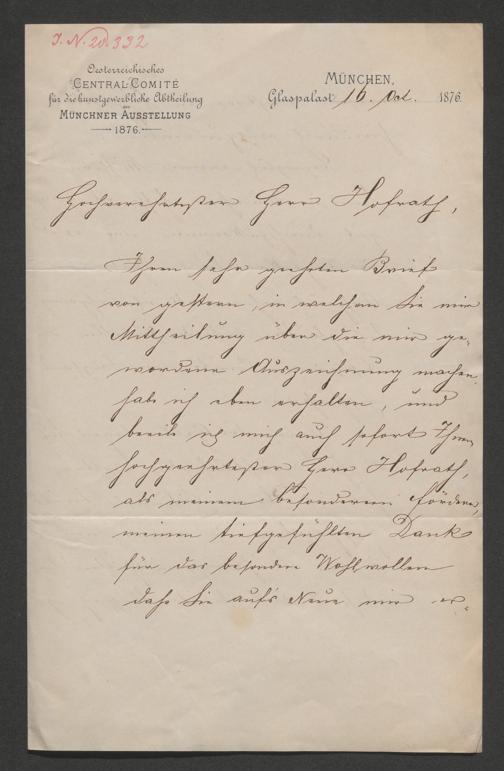 J. N. 20.332
Oesterreichisches
CENTRAL-COMITÉ
für die kunstgewerbliche Abtheilung
der
MÜNCHNER AUSSTELLUNG
1876.
MÜNCHEN,
Glaspalast 16. Oct. 1876.
Hochverehrtester Herr Hofrath,
Ihren sehr geehrten Brief
von gestern, in welchem Sie mir
Mittheilung über die mir ge-
wordene Auszeichnung machen
habe ich eben erhalten, und
beeile ich mich auch sofort Ihnen
hochgeehrtester Herr Hofrath,
als meinem besonderen Förderer,
meinen tiefgefühlten Dank
für das besondere Wohlwollen
daß Sie aufs Neue mir er-